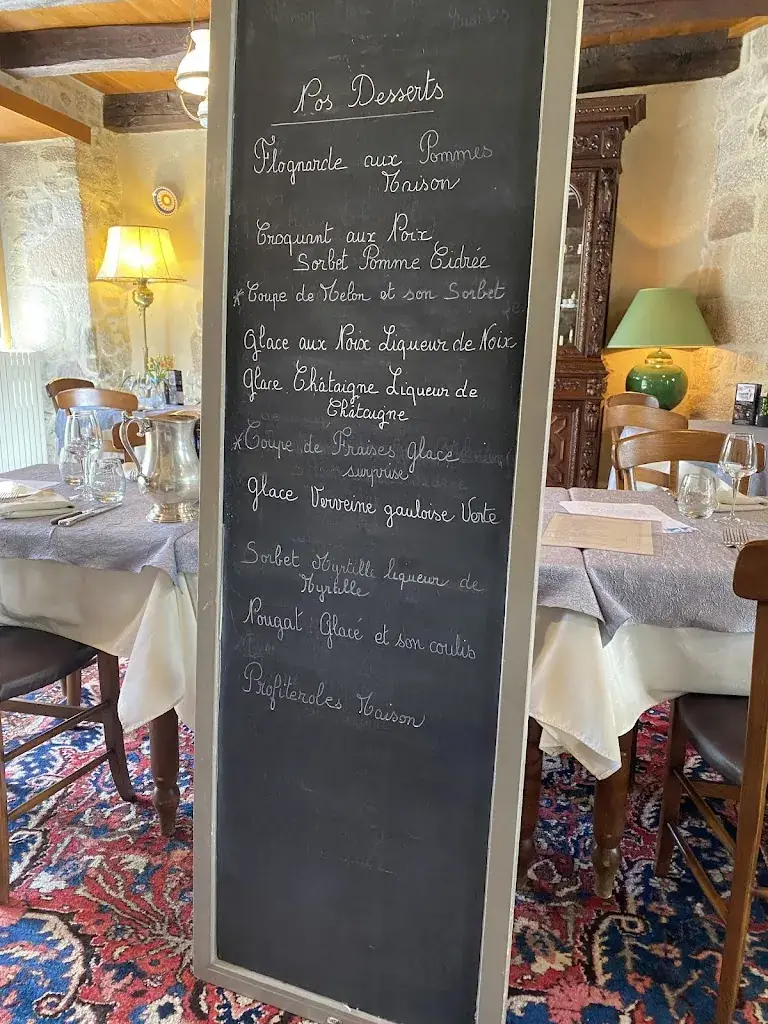 Nos Desserts
Flognarde aux Pommes
Maison
Croquant aux Noix
Sorbet Pomme Cidrée
*Coupe de Melon et son Sorbet
Glace aux Noix Liqueur de Noix
Glace Châtaigne Liqueur de
Châtaigne
*Coupe de Fraises Glace
surprise
Glace Verveine gauloise Verte
Sorbet Myrtille liqueur de
Myrtille
Nougat Glacé et son coulis
Profiteroles Maison